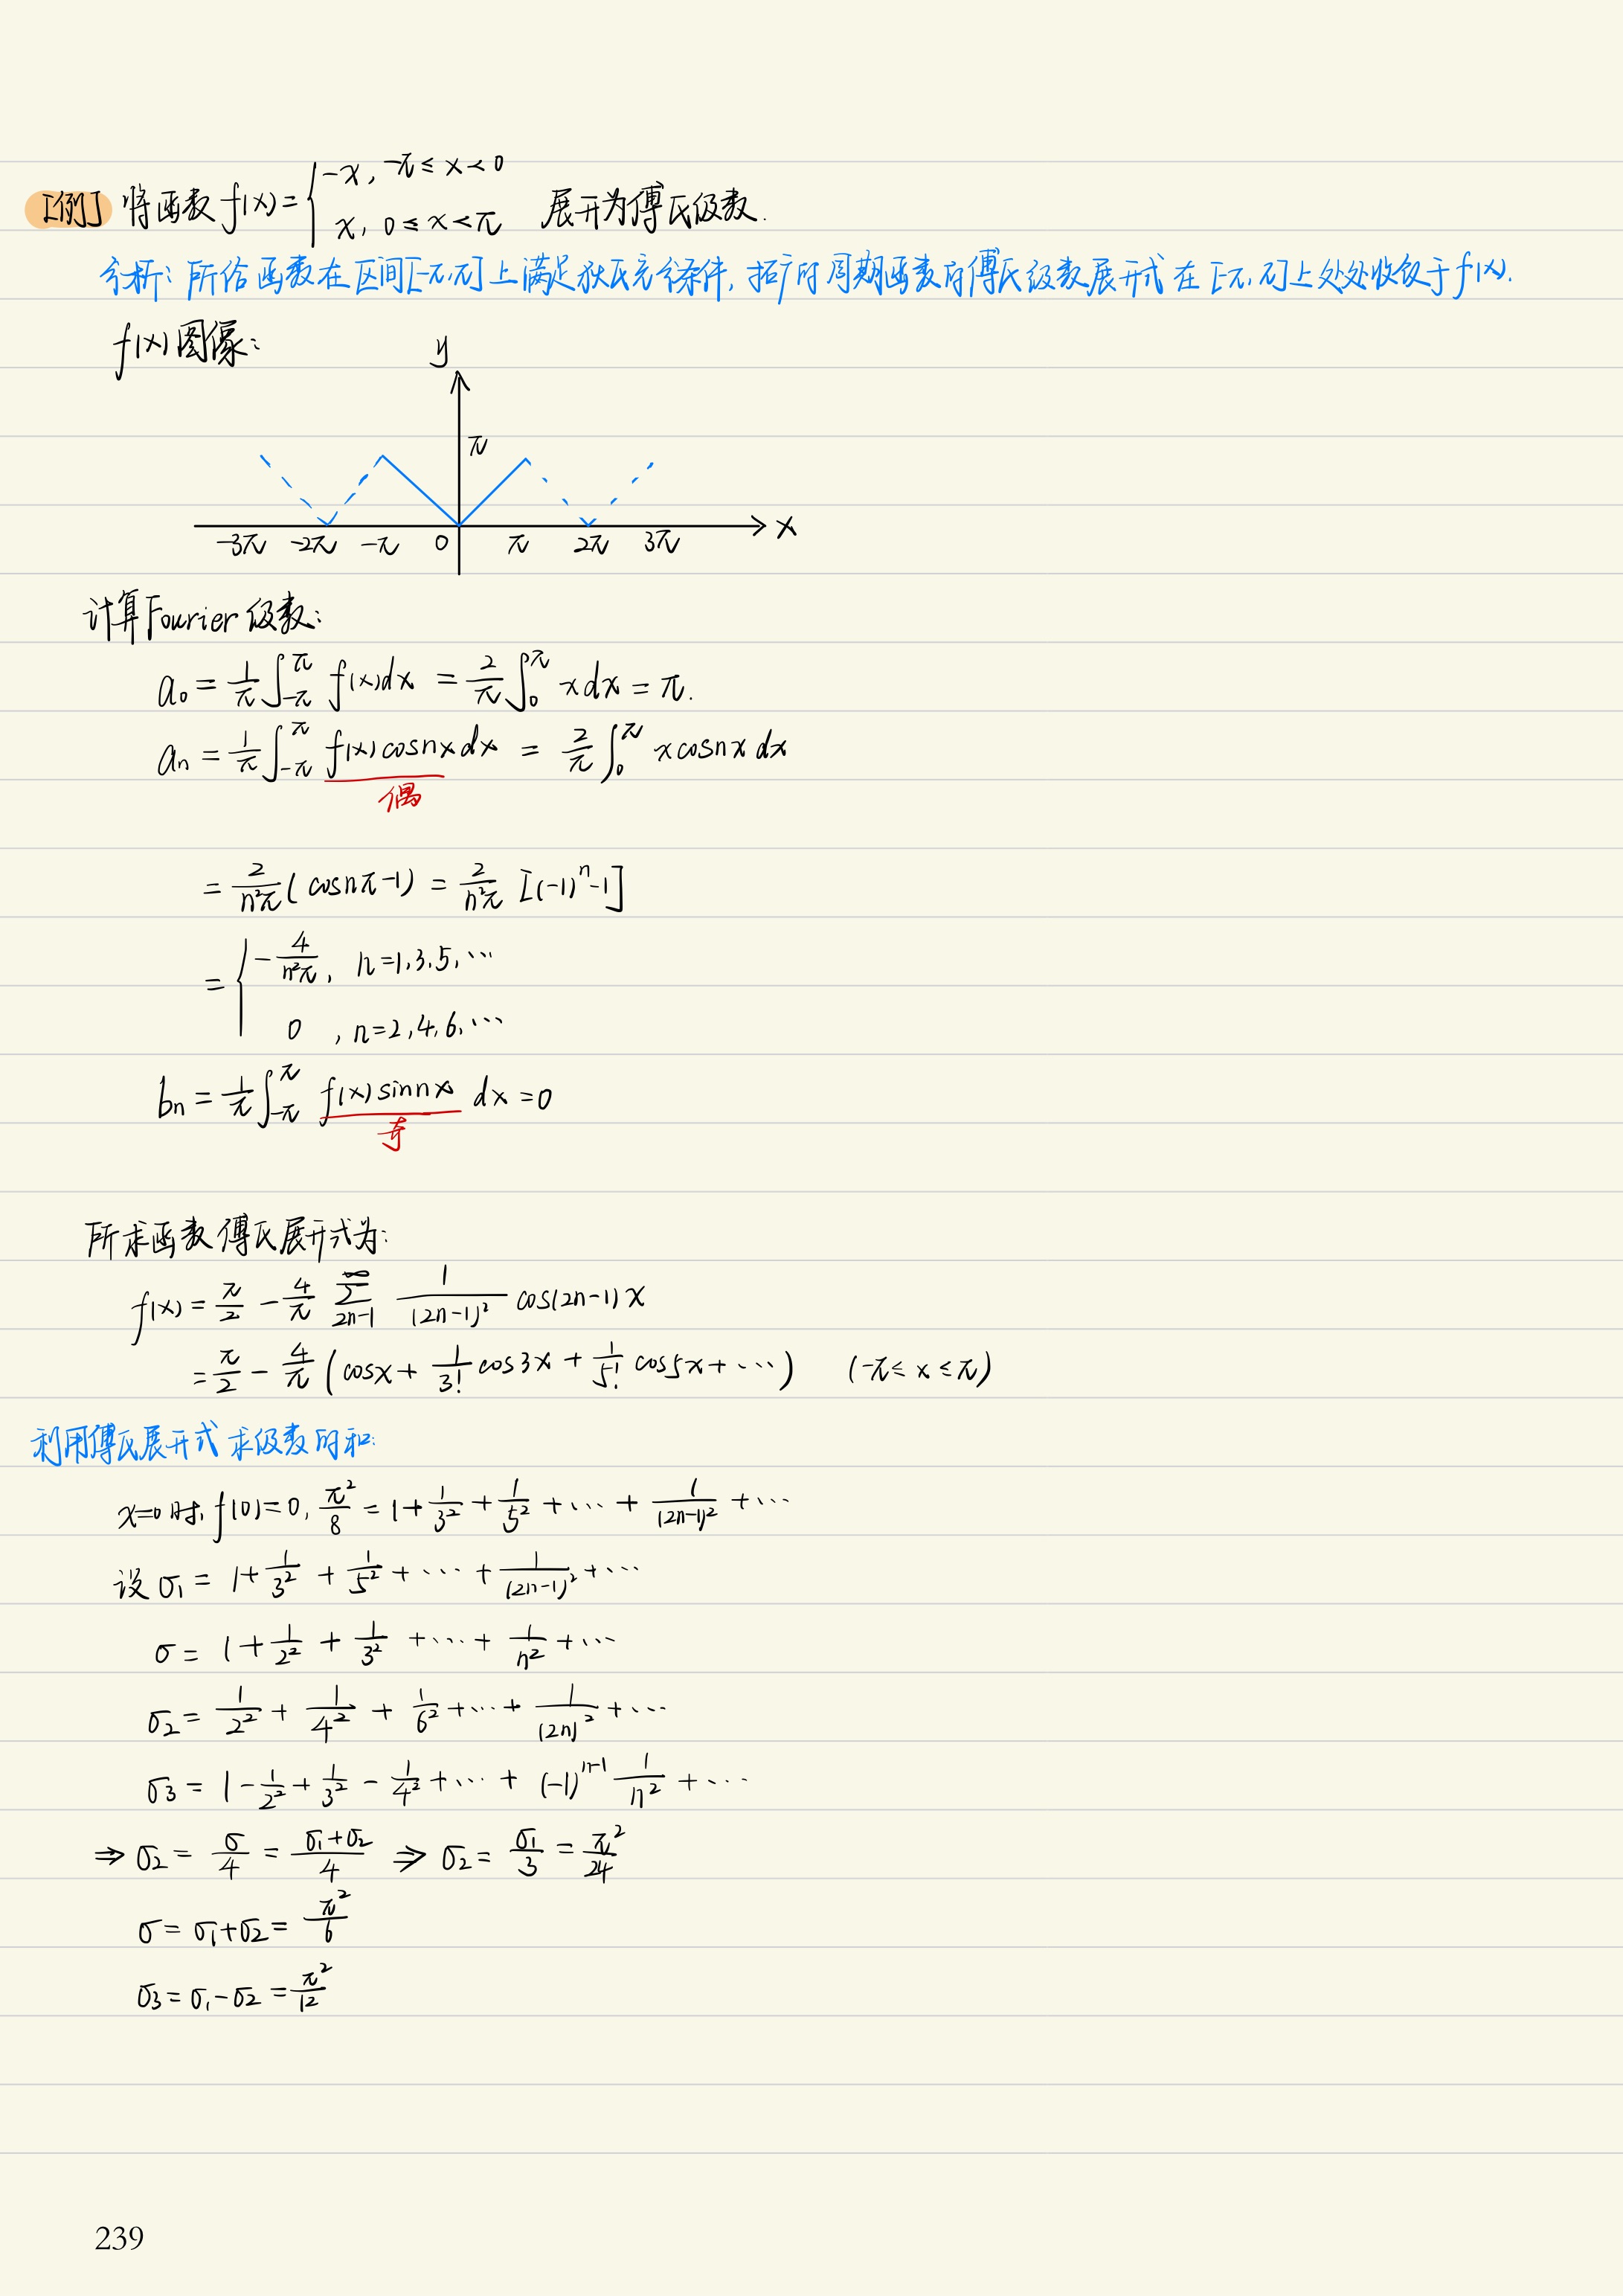 [例] 将函数 f(x)={ -x, -π≤x<0
x, 0≤x<π 展开为傅氏级数.
分析: 所给函数在区间[-π,π]上满足狄氏充分条件, 拓广的周期函数的傅氏级数展开式在[-π,π]上处处收敛于f(x).
f(x)图像:
y
π
-3π -2π -π 0 π 2π 3π x
计算Fourier级数:
a₀ = 1/π ∫_{-π}^{π} f(x)dx = 2/π ∫_0^π x dx = π.
aₙ = 1/π ∫_{-π}^{π} f(x)cosnx dx = 2/π ∫_0^π x cosnx dx
偶
= 2/(n²π) (cosnπ-1) = 2/(n²π) [(-1)ⁿ-1]
= { -4/(n²π), n=1,3,5,⋯
0, n=2,4,6,⋯
bₙ = 1/π ∫_{-π}^{π} f(x)sinnx dx = 0
奇
所求函数傅氏展开式为:
f(x) = π/2 - 4/π ∑_{2n-1}^{∞} 1/(2n-1)² cos(2n-1)x
= π/2 - 4/π (cosx + 1/3! cos3x + 1/5! cos5x + ⋯) (-π≤x≤π)
利用傅氏展开式求级数的和:
x=0时, f(0)=0, π²/8 = 1 + 1/3² + 1/5² + ⋯ + 1/(2n-1)² + ⋯
设 σ₁ = 1 + 1/3² + 1/5² + ⋯ + 1/(2n-1)² + ⋯
σ = 1 + 1/2² + 1/3² + ⋯ + 1/n² + ⋯
σ₂ = 1/2² + 1/4² + 1/6² + ⋯ + 1/(2n)² + ⋯
σ₃ = 1 - 1/2² + 1/3² - 1/4² + ⋯ + (-1)ⁿ⁻¹ 1/n² + ⋯
⇒ σ₂ = σ/4 = (σ₁+σ₂)/4 ⇒ σ₂ = σ₁/3 = π²/24
σ = σ₁+σ₂ = π²/6
σ₃ = σ₁-σ₂ = π²/12
239